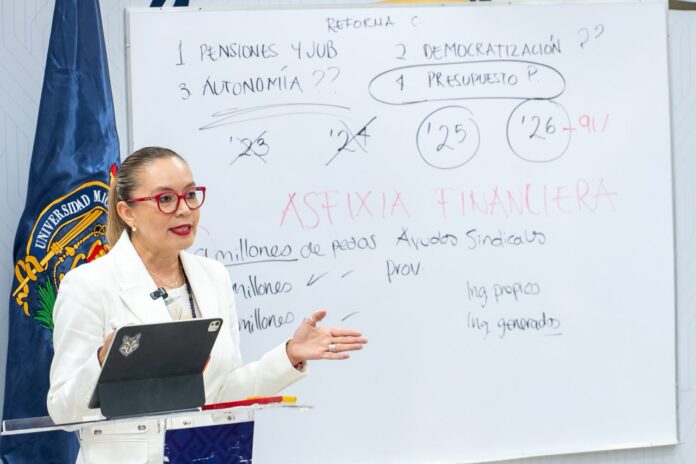 REFORMA C
1 PENSIONES Y JUB
2. DEMOCRATIZACIÓN ??
3 AUTONOMÍA ??
4 PRESUPUESTO P
'23
'24
'25
'26 -91%
ASFIXIA FINANCIERA
millones de pesos Ayudas Sindicales
millones ✓ Prov.
millones ✓
Ing. propios
Ing. generados
UNIVERSIDAD MI